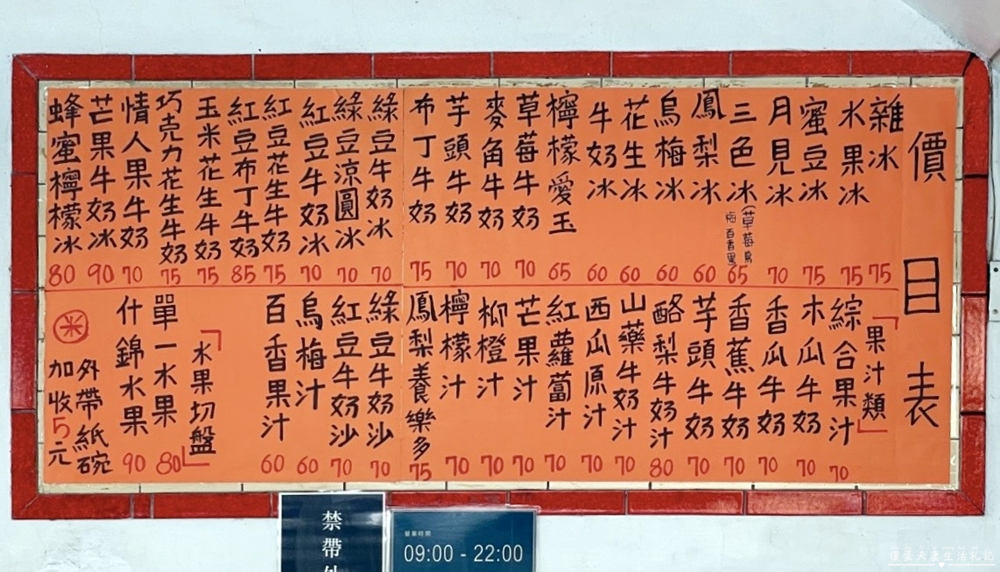 價目表
雜冰 75
水果冰 75
蜜豆冰 75
月見冰 70
三色冰 65
(草莓烏
梅百香果
鳳梨冰 60
烏梅冰 60
花生冰 60
牛奶冰 60
檸檬愛玉 65
草莓牛奶 70
麥角牛奶 70
芋頭牛奶 70
布丁牛奶 75
綠豆牛奶冰 70
綠豆涼圓冰 70
紅豆牛奶冰 70
紅豆花生牛奶 75
紅豆布丁牛奶 85
玉米花生牛奶 75
巧克力花生牛奶 75
情人果牛奶 70
芒果牛奶冰 90
蜂蜜檸檬冰 80
「果汁類」
綜合果汁 70
木瓜牛奶 70
香瓜牛奶 70
香蕉牛奶 70
芋頭牛奶 70
酪梨牛奶汁 80
山藥牛奶汁 70
西瓜原汁 70
紅蘿蔔汁 70
芒果汁 70
柳橙汁 70
檸檬汁 70
鳳梨養樂多 75
綠豆牛奶沙 70
紅豆牛奶沙 70
烏梅汁 60
百香果汁 60
「水果切盤」
單一水果 80
什錦水果 90
外帶紙碗
加收5元
禁帶外
營業時間
09:00 - 22:00